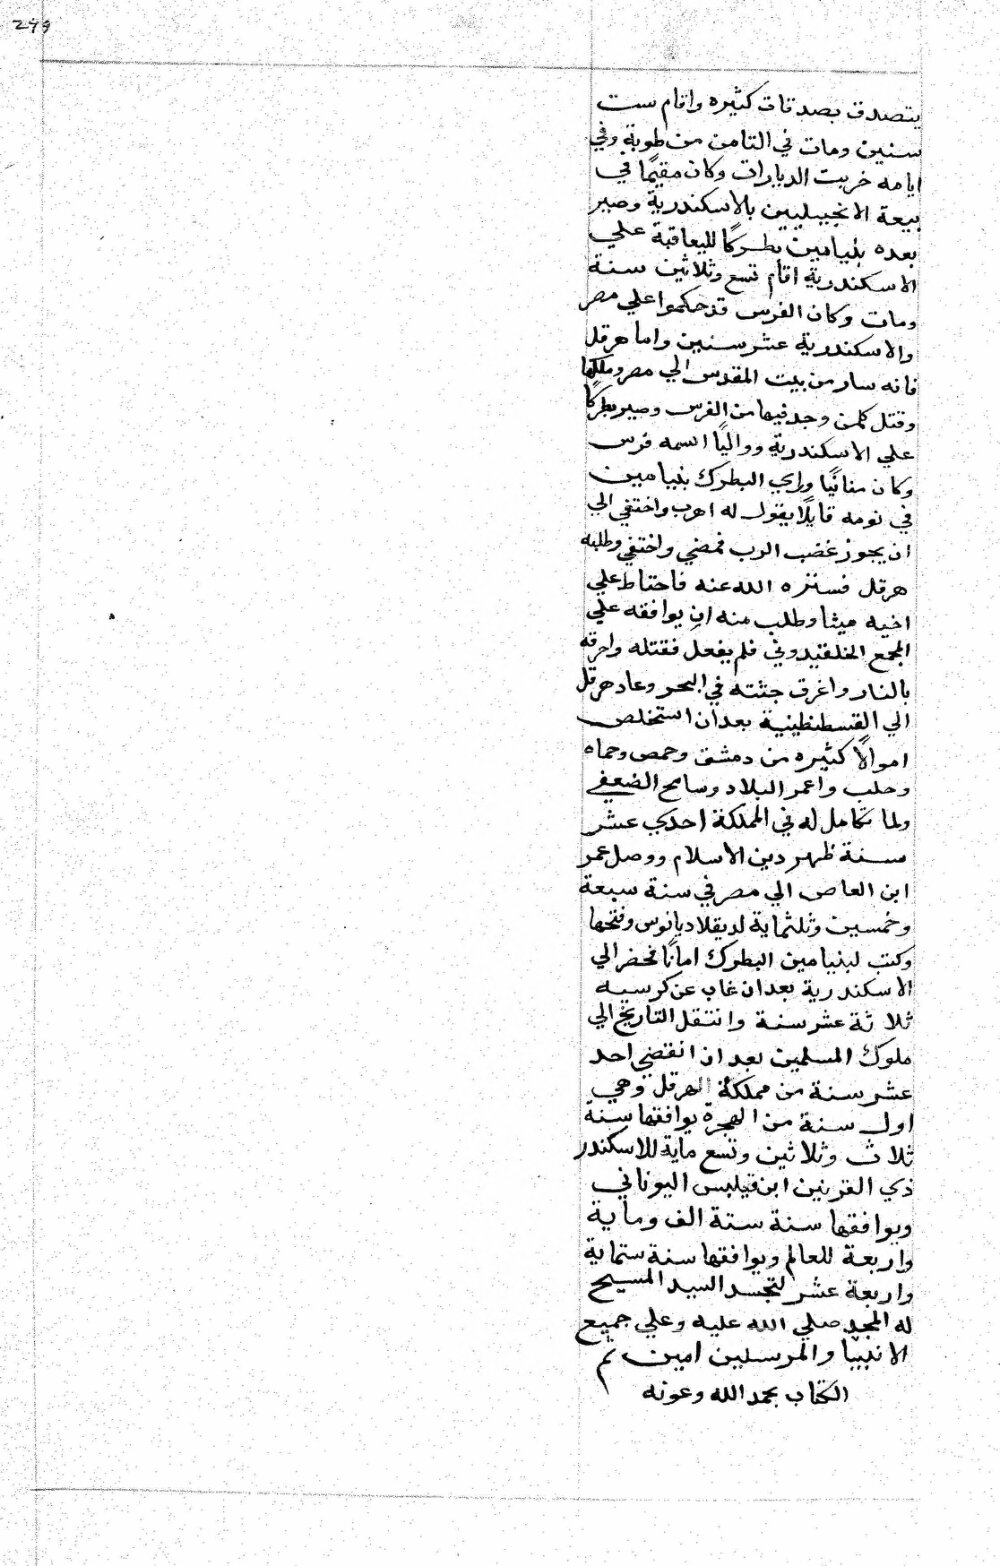 249
يتصدق بصدقات كثيره واقام ست
سنين ومات في التامن من طوبة وفي
ايامه خربت الديارات وكان مقيمًا في
بيعة الانجيليين بالاسكندرية وصير
بعده بنيامين بطركًا لليعاقبة علي
الاسكندرية اقام تسع وثلاثين سنة
ومات وكان الفرس قد حكموا علي مصر
والاسكندرية عشر سنين واما هرقل
فانه سار من بيت المقدس الي مصر وملكها
وقتل كلمن وجد فيها من الفرس وصير بطركًا
علي الاسكندرية وواليًا اسمه فرس
وكان منانيًا وراي البطرك بنيامين
في نومه قايلًا يقول له اهرب واختفي الي
ان يجوز غضب الرب فمضي واختفي وطلبه
هرقل فستره الله عنه فاحتاط علي
اخيه مينا وطلب منه ان يوافقه علي
المجمع الخلقيدوني فلم يفعل فقتله واحرقه
بالنار واغرق جثته في البحر وعاد هرقل
الي القسطنطينية بعد ان استخلص
اموالًا كثيره من دمشق وحمص وحماه
وحلب واعمر البلاد وسامح الضعفي
ولما تكامل له في المملكة احدي عشر
سنة ظهر دين الاسلام ووصل عمر
ابن العاص الي مصر في سنة سبعة
وخمسين وثلثماية لديقلاديانوس وفتحها
وكتب لبنيامين البطرك امانًا فحضر الي
الاسكندرية بعد ان غاب عن كرسيه
ثلاثة عشر سنة وانتقل التاريخ الي
ملوك المسلمين بعد ان انقضي احد
عشر سنة من مملكة الهرقل وهي
اول سنة من الهجرة يوافقها سنة
ثلاث وثلاثين وتسع ماية للاسكندر
ذي القرنين ابن فيلبس اليوناني
ويوافقها سنة ستة الف وماية
واربعة للعالم ويوافقها سنة ستماية
واربعة عشر لتجسد السيد المسيح
له المجد صلي الله عليه وعلي جميع
الانبيا والمرسلين امين تم
الكتاب بحمد الله وعونه